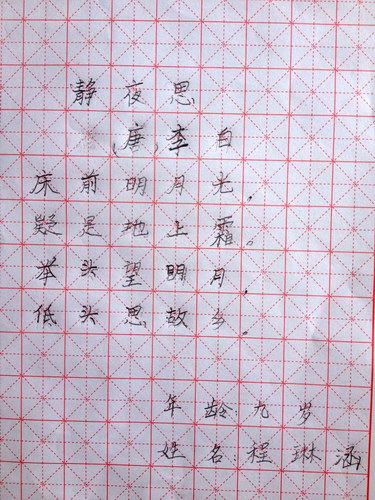 静夜思
(唐)李白
床前明月光,
疑是地上霜。
举头望明月,
低头思故乡。
年龄九岁
姓名:程琳涵